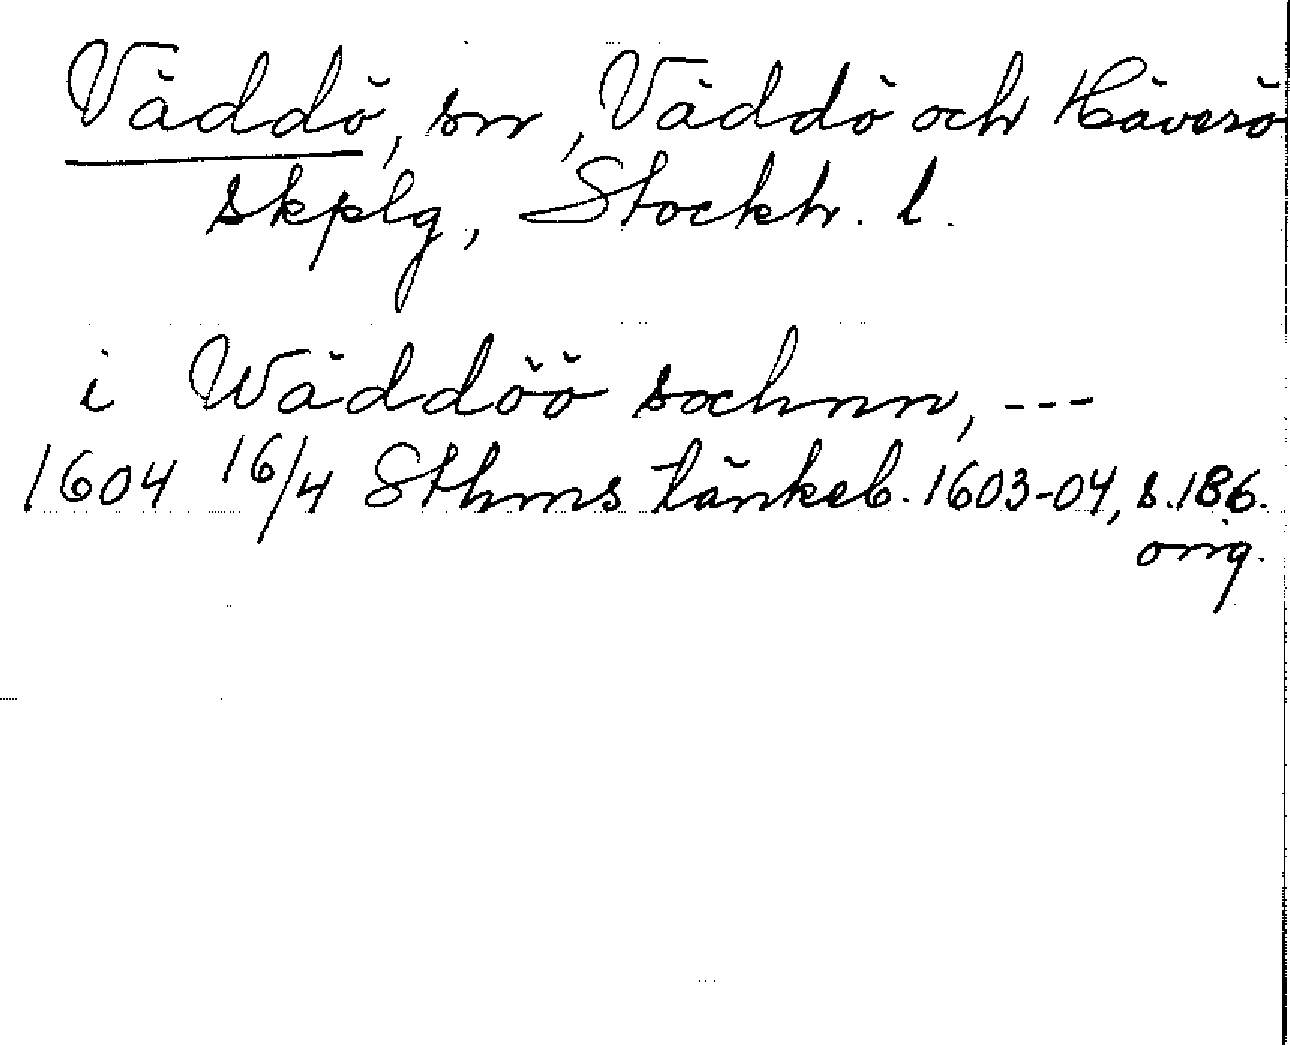 Väddö, sn, Väddö och Häverö
skplg, Stockh. l.
i Wäddöö sochnn, ---
1604 16/4 Sthms tänkeb. 1603-04, s. 186.
orig.